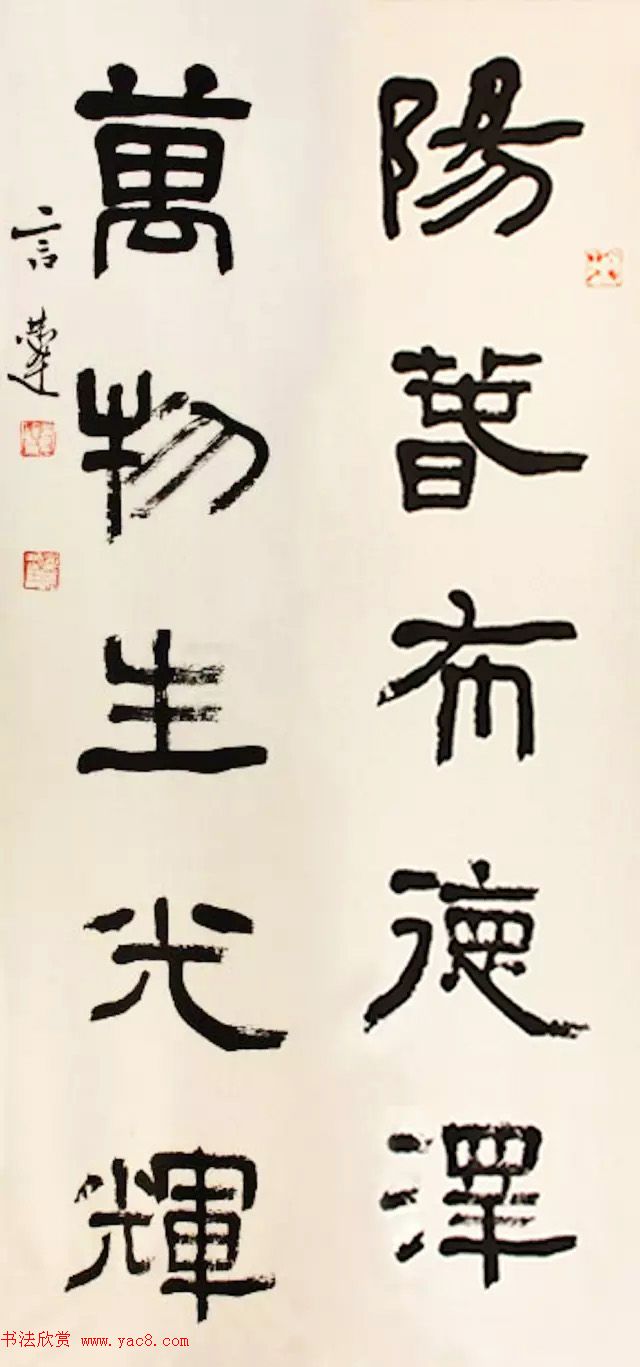 陽萅布德澤
萬物生光輝
言恭達
书法欣赏 www.yac8.com